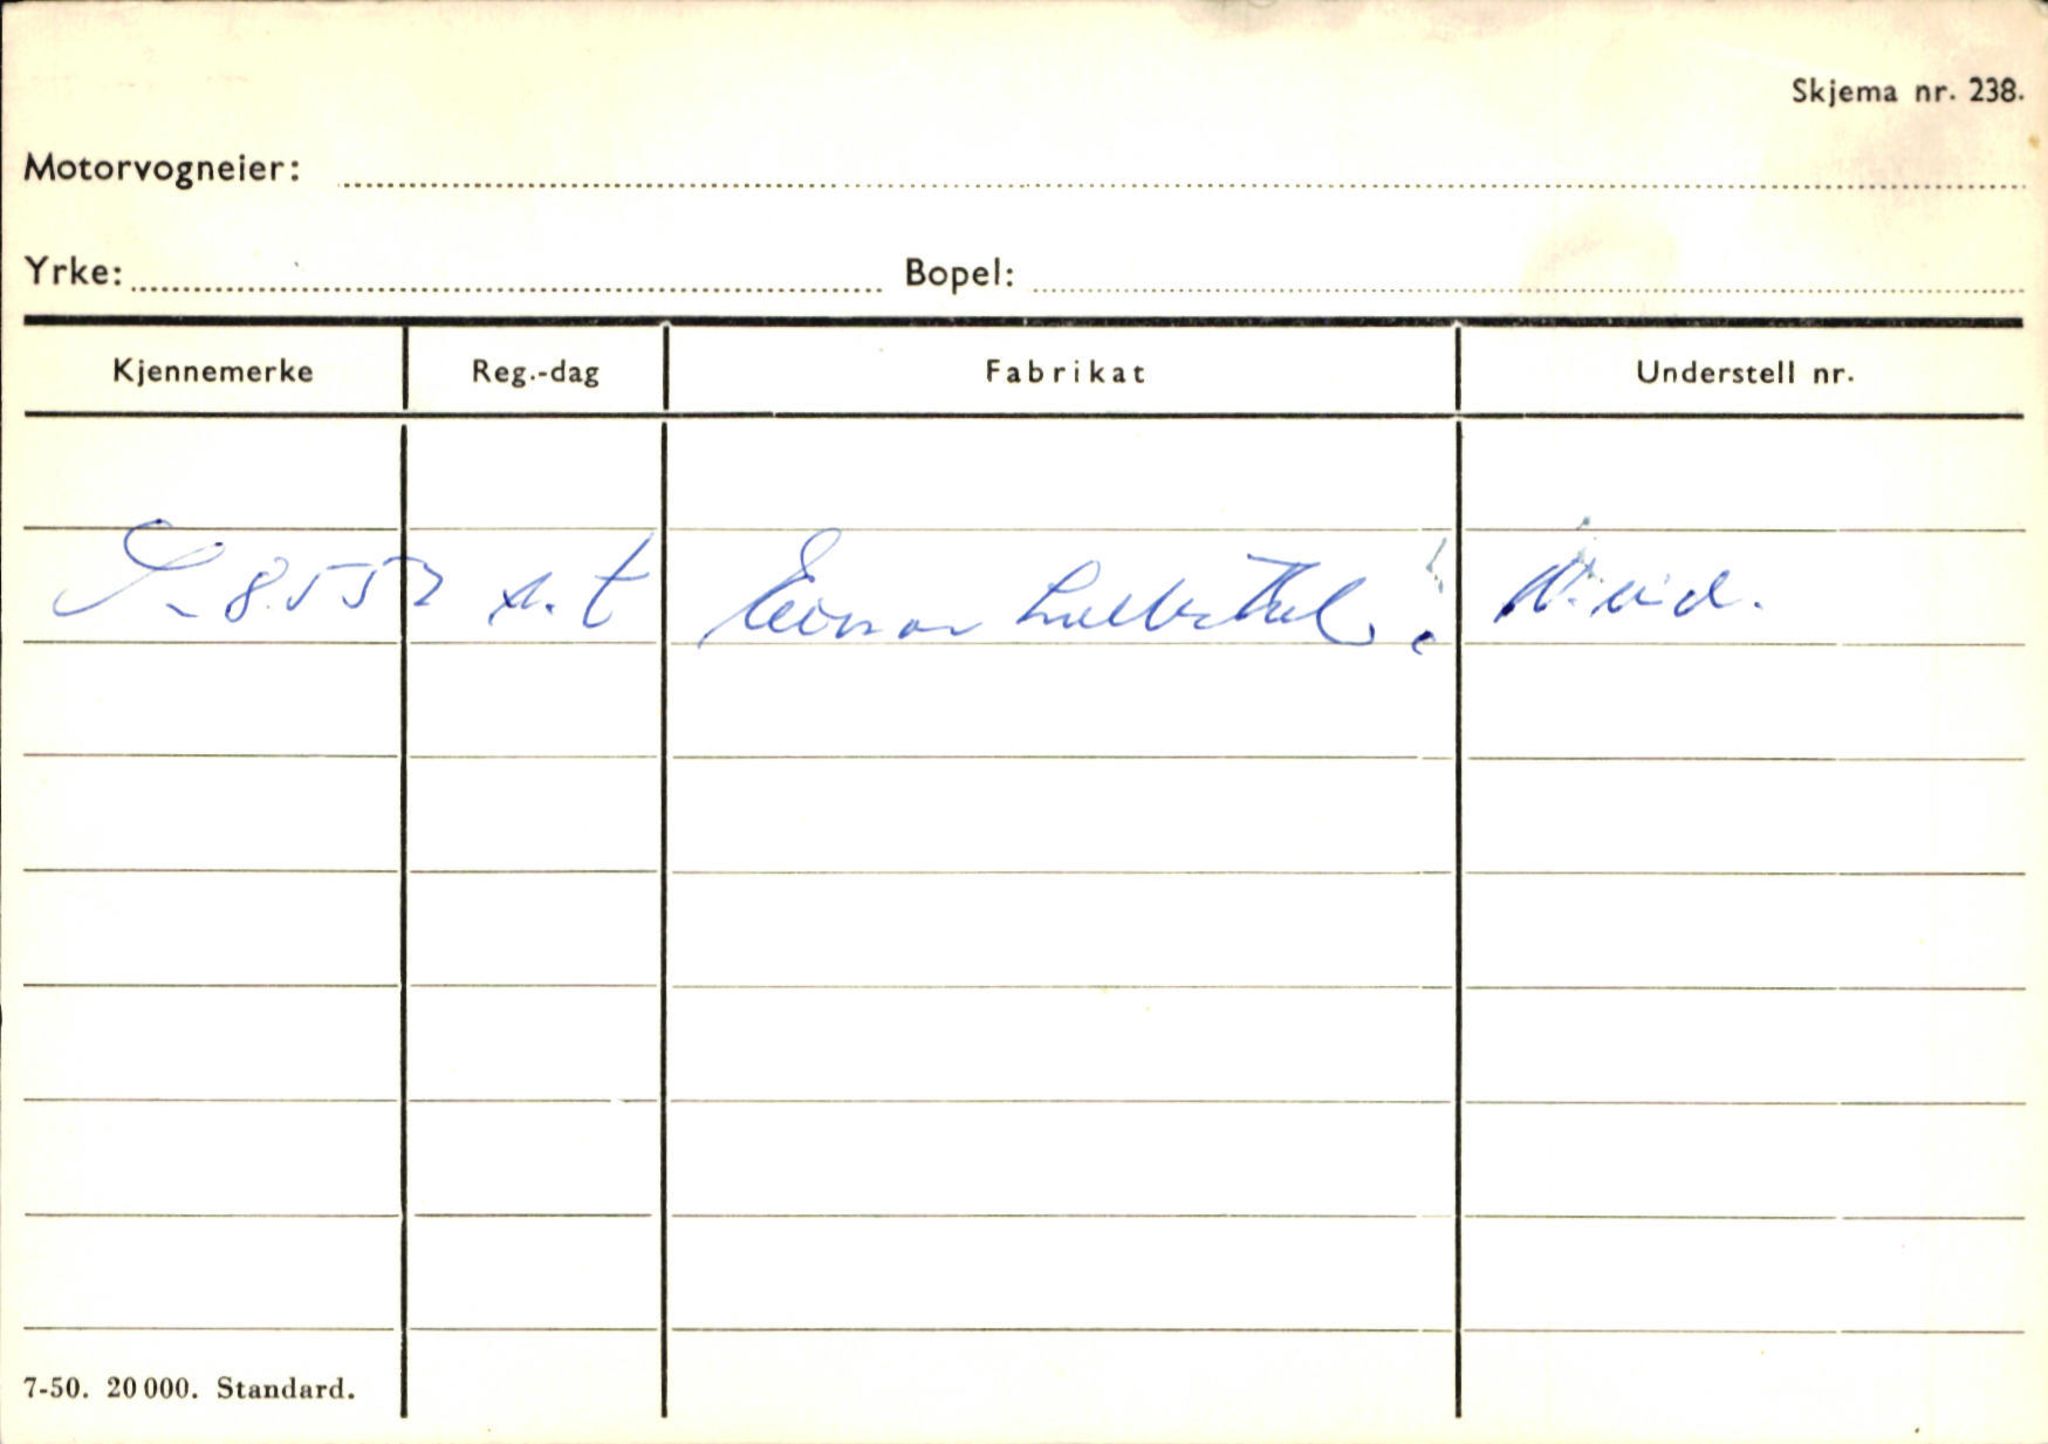 Skjema nr. 238.
Motorvogneier:
Yrke: Bopel:
Kjennemerke Reg.-dag Fabrikat Understell nr.
S-8557 s.t Einar
7-50. 20 000. Standard.